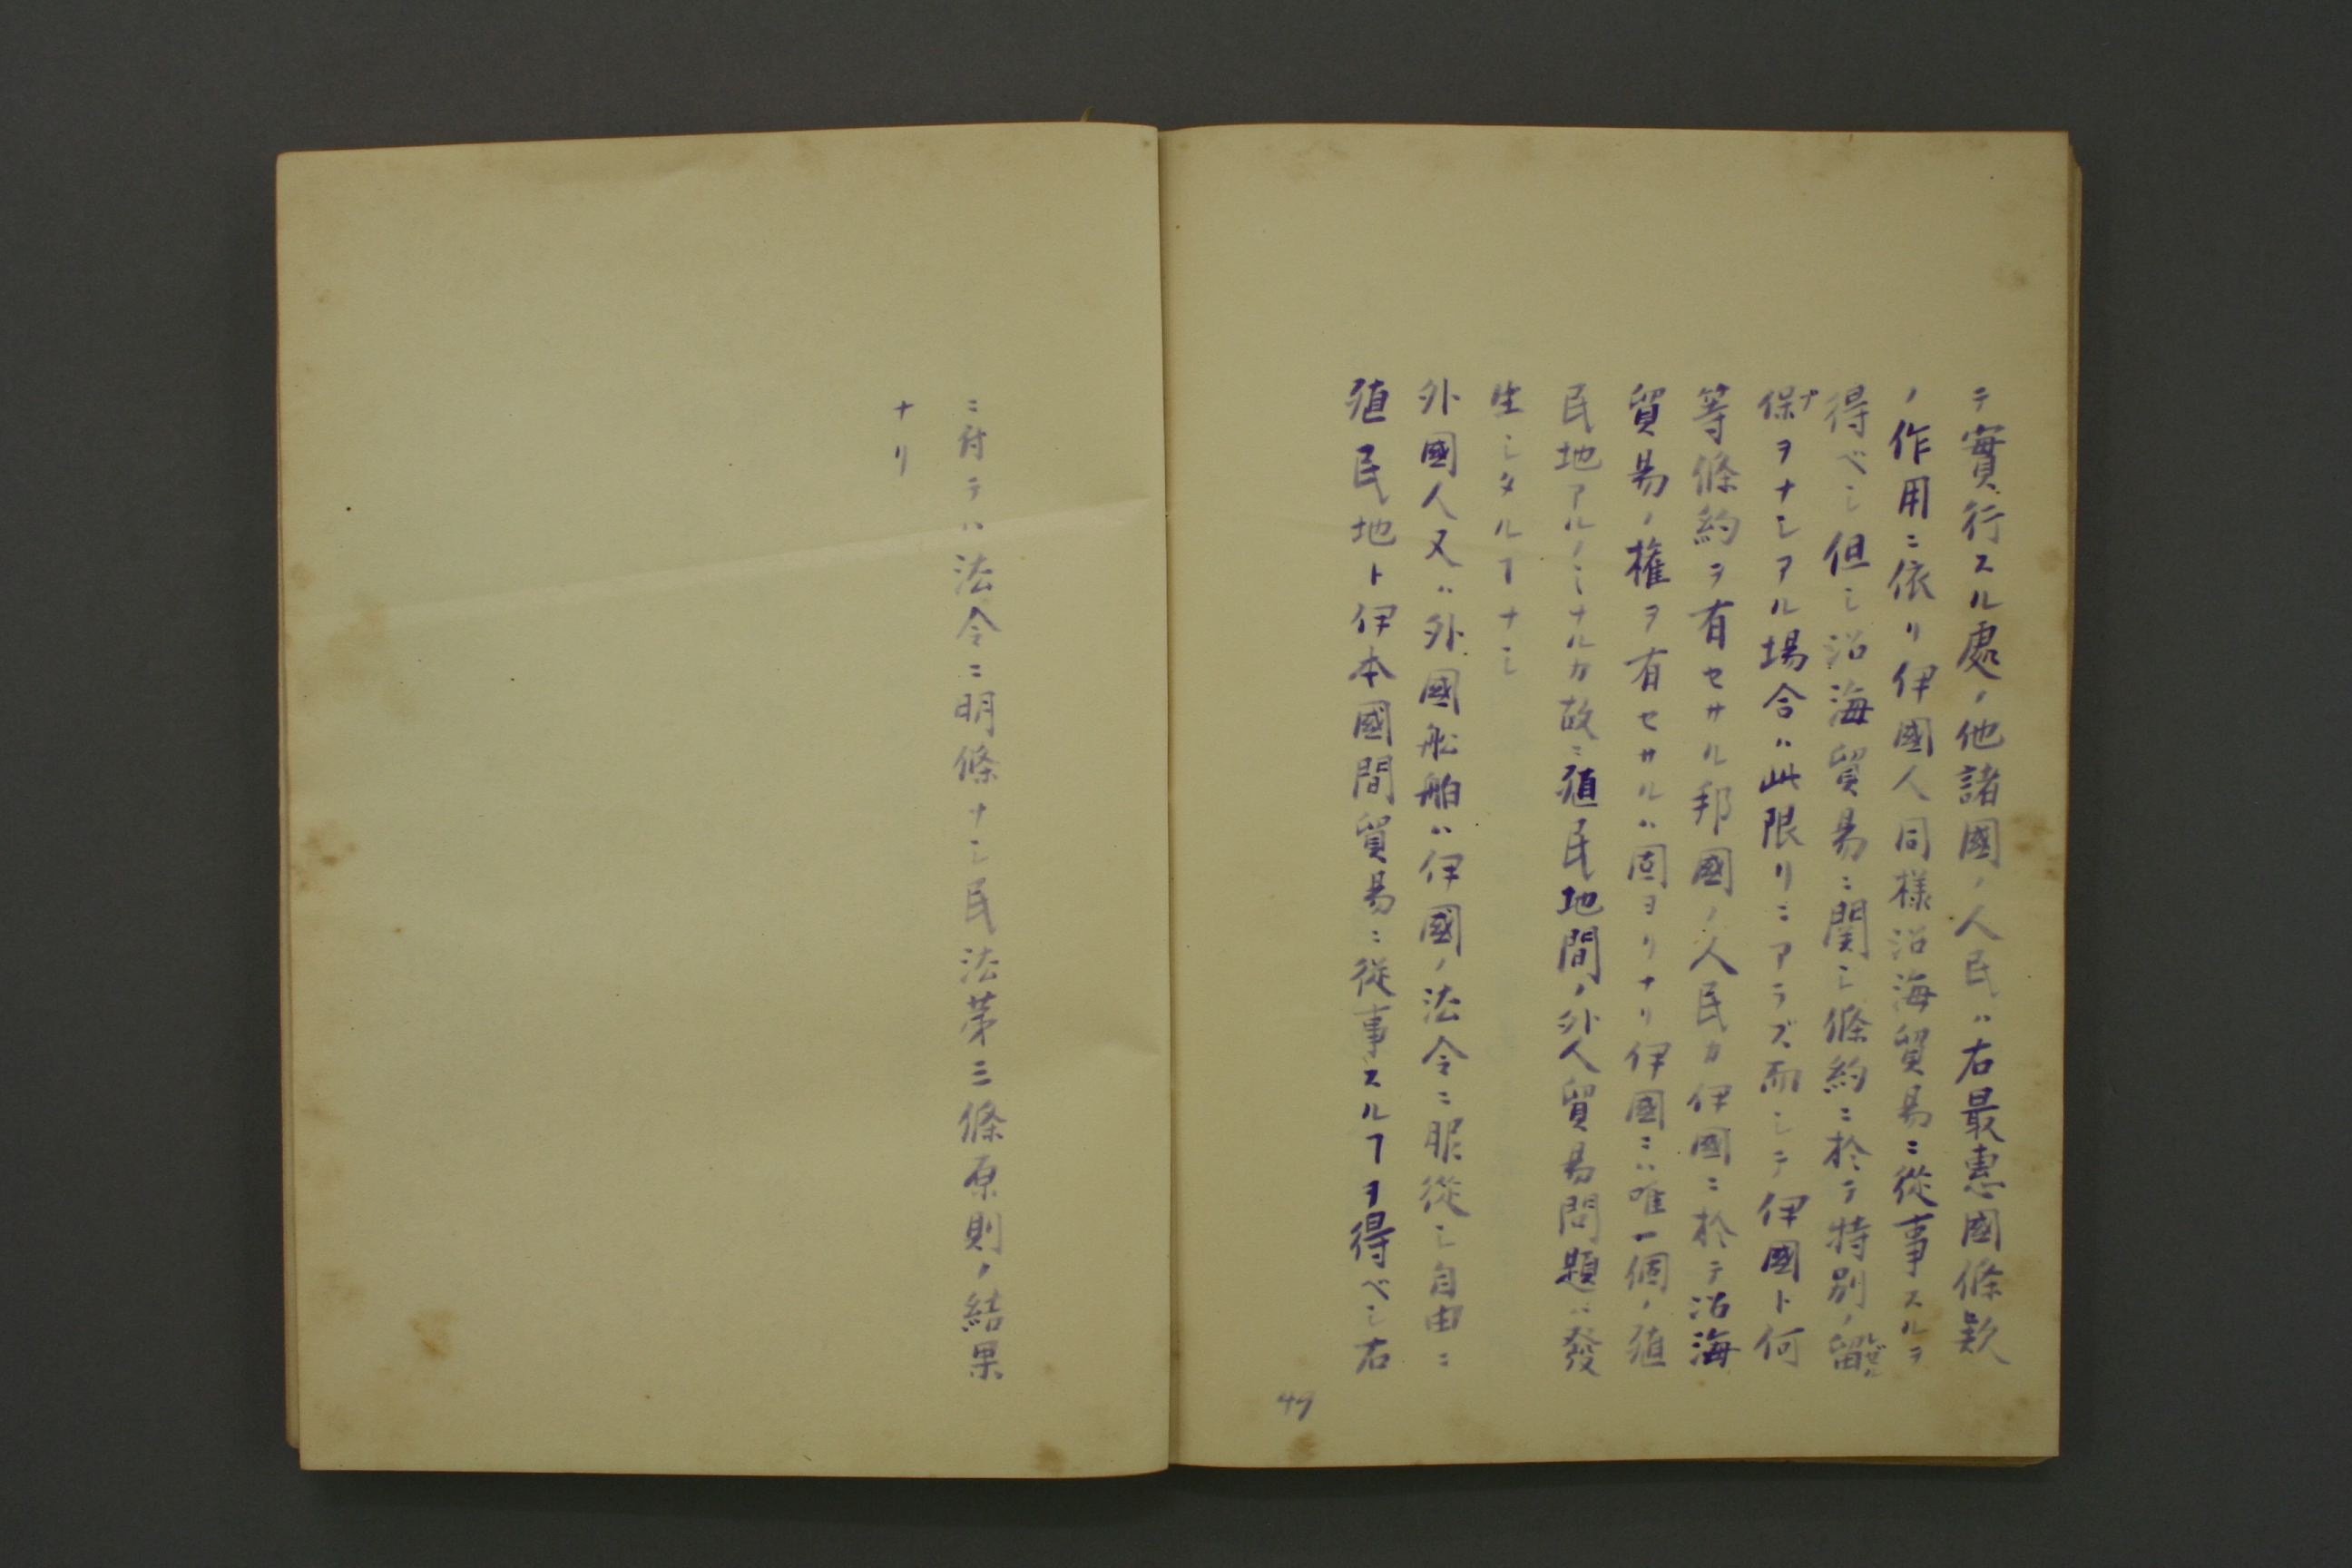 テ實行スル處ノ他諸國ノ人民ハ右最惠國條欵
ノ作用ニ依リ伊國人同様沿海貿易ニ從事スルヲ
得ベシ但シ沿海貿易ニ関シ條約ニ於テ特別ノ留
保ヲナシアル場合ハ此限リニアラズ而シテ伊國ト何
等條約ヲ有セサル邦國ノ人民カ伊國ニ於テ沿海
貿易ノ権ヲ有セサルハ固ヨリナリ伊國ニハ唯一個ノ殖
民地アルノミナルカ故ニ殖民地間ノ外人貿易問題ハ發
生シタルヿナシ
外國人又ハ外國船舶ハ伊國ノ法令ニ服從シ自由ニ
殖民地ト伊本國間貿易ニ從事スルヿヲ得ベシ右
49
ニ付テハ法令ニ明條ナシ民法第三條原則ノ結果
ナリ